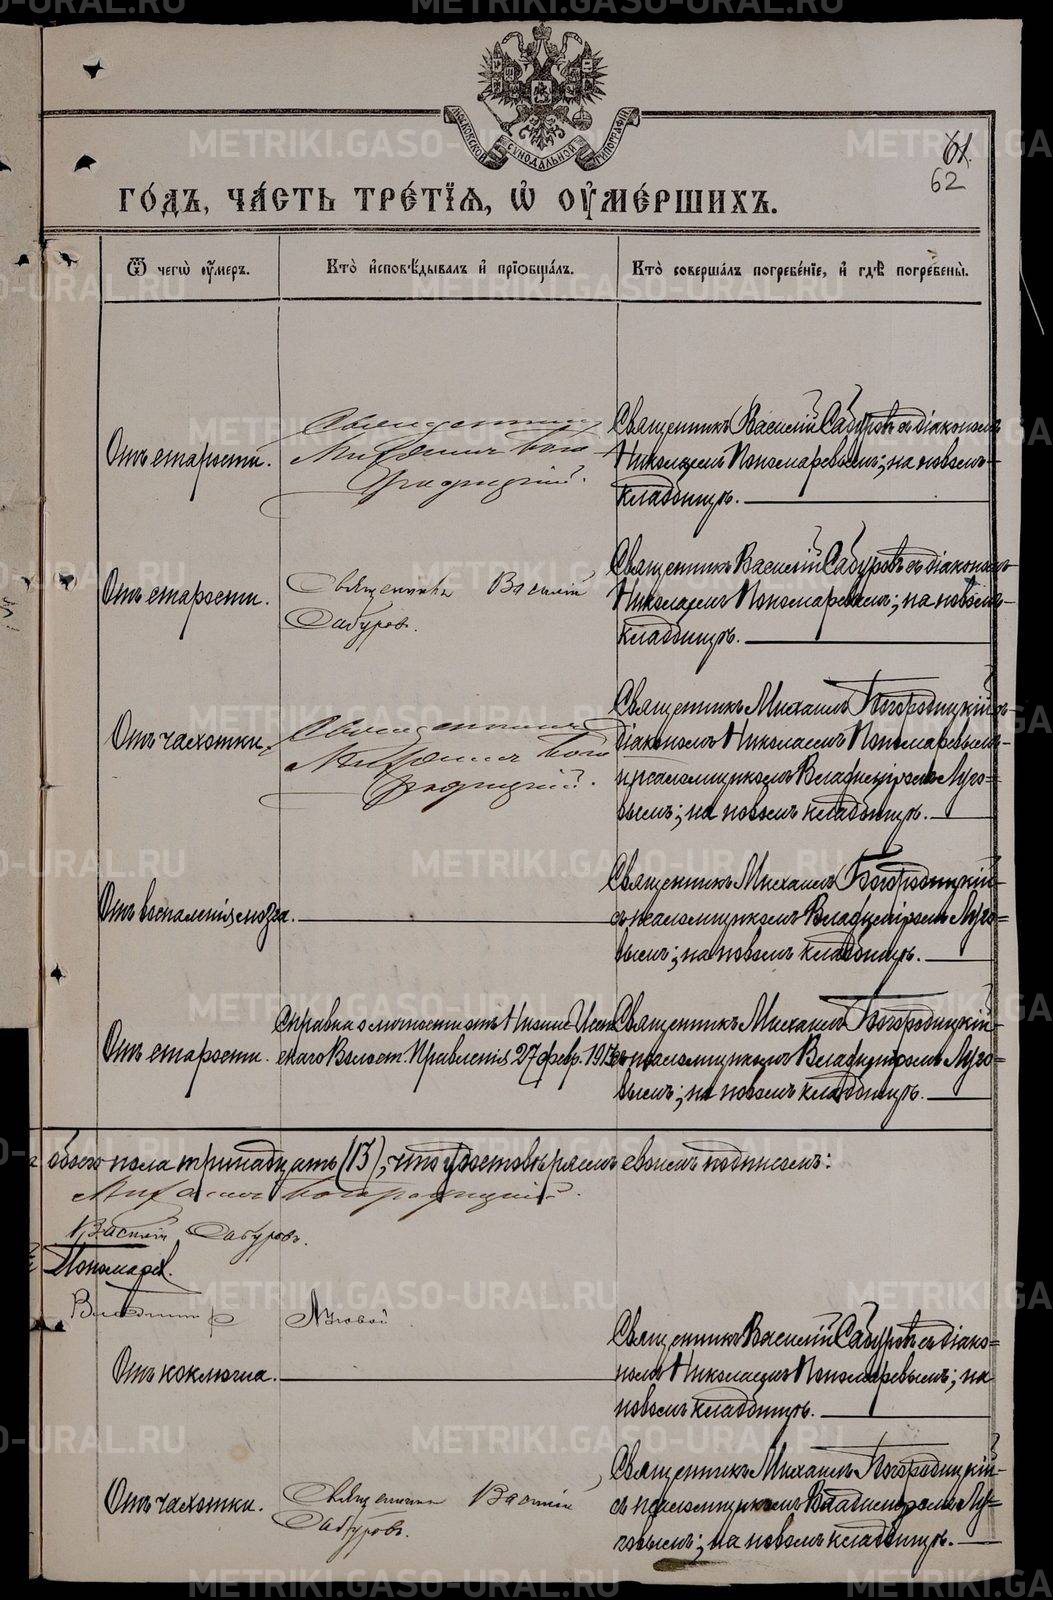 МОСКОВСКОЙ СѴНОДАЛЬНОЙ ТИПОГРАФІИ
61
62
ГО́ДЪ, ЧА́СТЬ ТРЕ́ТІЯ, Ѡ҆ ОУ҆МЕ́РШИХЪ.
Ѿ чегѡ̀ оу҆́меръ.
Кто̀ и҆спов́ѣдывалъ и҆ прїѡбща́лъ.
Кто̀ соверша́лъ погребе́нїе, и҆ гдѣ̀ погребены̀.
Отъ старости.
Священник
Михаилъ Бого-
родицкій.
Священникъ Василій Сабуровъ съ діакономъ
Николаемъ Пономаревымъ; на новомъ
кладбищѣ.
Отъ старости.
Священникъ Василій
Сабуров.
Священникъ Василій Сабуровъ съ діакономъ
Николаемъ Пономаревымъ; на новомъ
кладбищѣ.
Отъ чахотки.
Священникъ
Михаилъ Бого
родицкій.
Священникъ Михаилъ Богородицкій съ
діакономъ Николаемъ Пономаревымъ
и псаломщикомъ Владиміромъ Луго-
вымъ; на новомъ кладбищѣ.
Отъ воспаленія мозга.
Священникъ Михаилъ Богородицкій
съ псаломщикомъ Владиміромъ Луго-
вымъ; на новомъ кладбищѣ.
Отъ старости.
Справка о личности отъ Нижне-Исет
скаго Волост. Правленія 27 февр.
Священникъ Михаилъ Богородицкій
съ псаломщикомъ Владиміромъ Луго-
вымъ; на новомъ кладбищѣ.
обоего пола тринадцать (13), что удостовѣряемъ своимъ подписомъ:
Михаилъ Богородицкій.
Василій Сабуровъ.
Пономарев.
Владимир Луговой
Отъ коклюша.
Священникъ Василій Сабуровъ съ діако-
номъ Николаемъ Пономаревымъ; на
новомъ кладбищѣ.
Отъ чахотки.
Священникъ Василій
Сабуровъ.
Священникъ Михаилъ Богородицкій
съ псаломщикомъ Владиміромъ Лу-
говымъ; на новомъ кладбищѣ.
METRIKI.GASO-URAL.RU